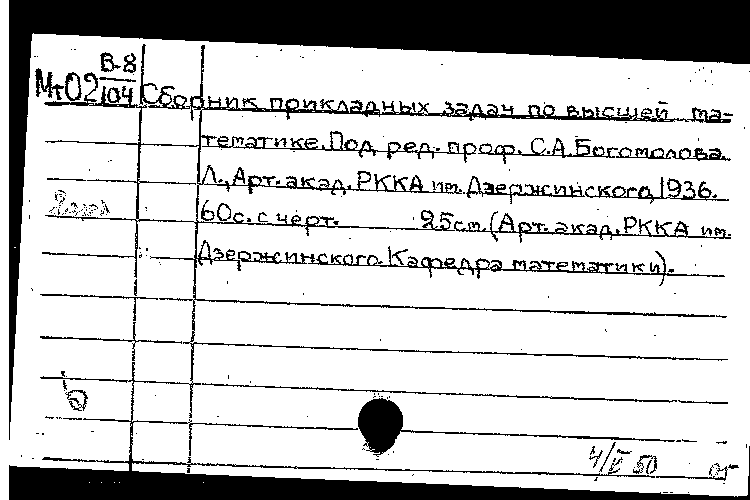 В-8
Мт02 104 Сборник прикладных задач по высшей ма-
тематике. Под ред. проф. С.А. Богомолова.
Л., Арт. акад. РККА им. Дзержинского, 1936.
60с. с черт. 25см. (Арт. акад. РККА им.
Дзержинского. Кафедра математики).
4/V 50